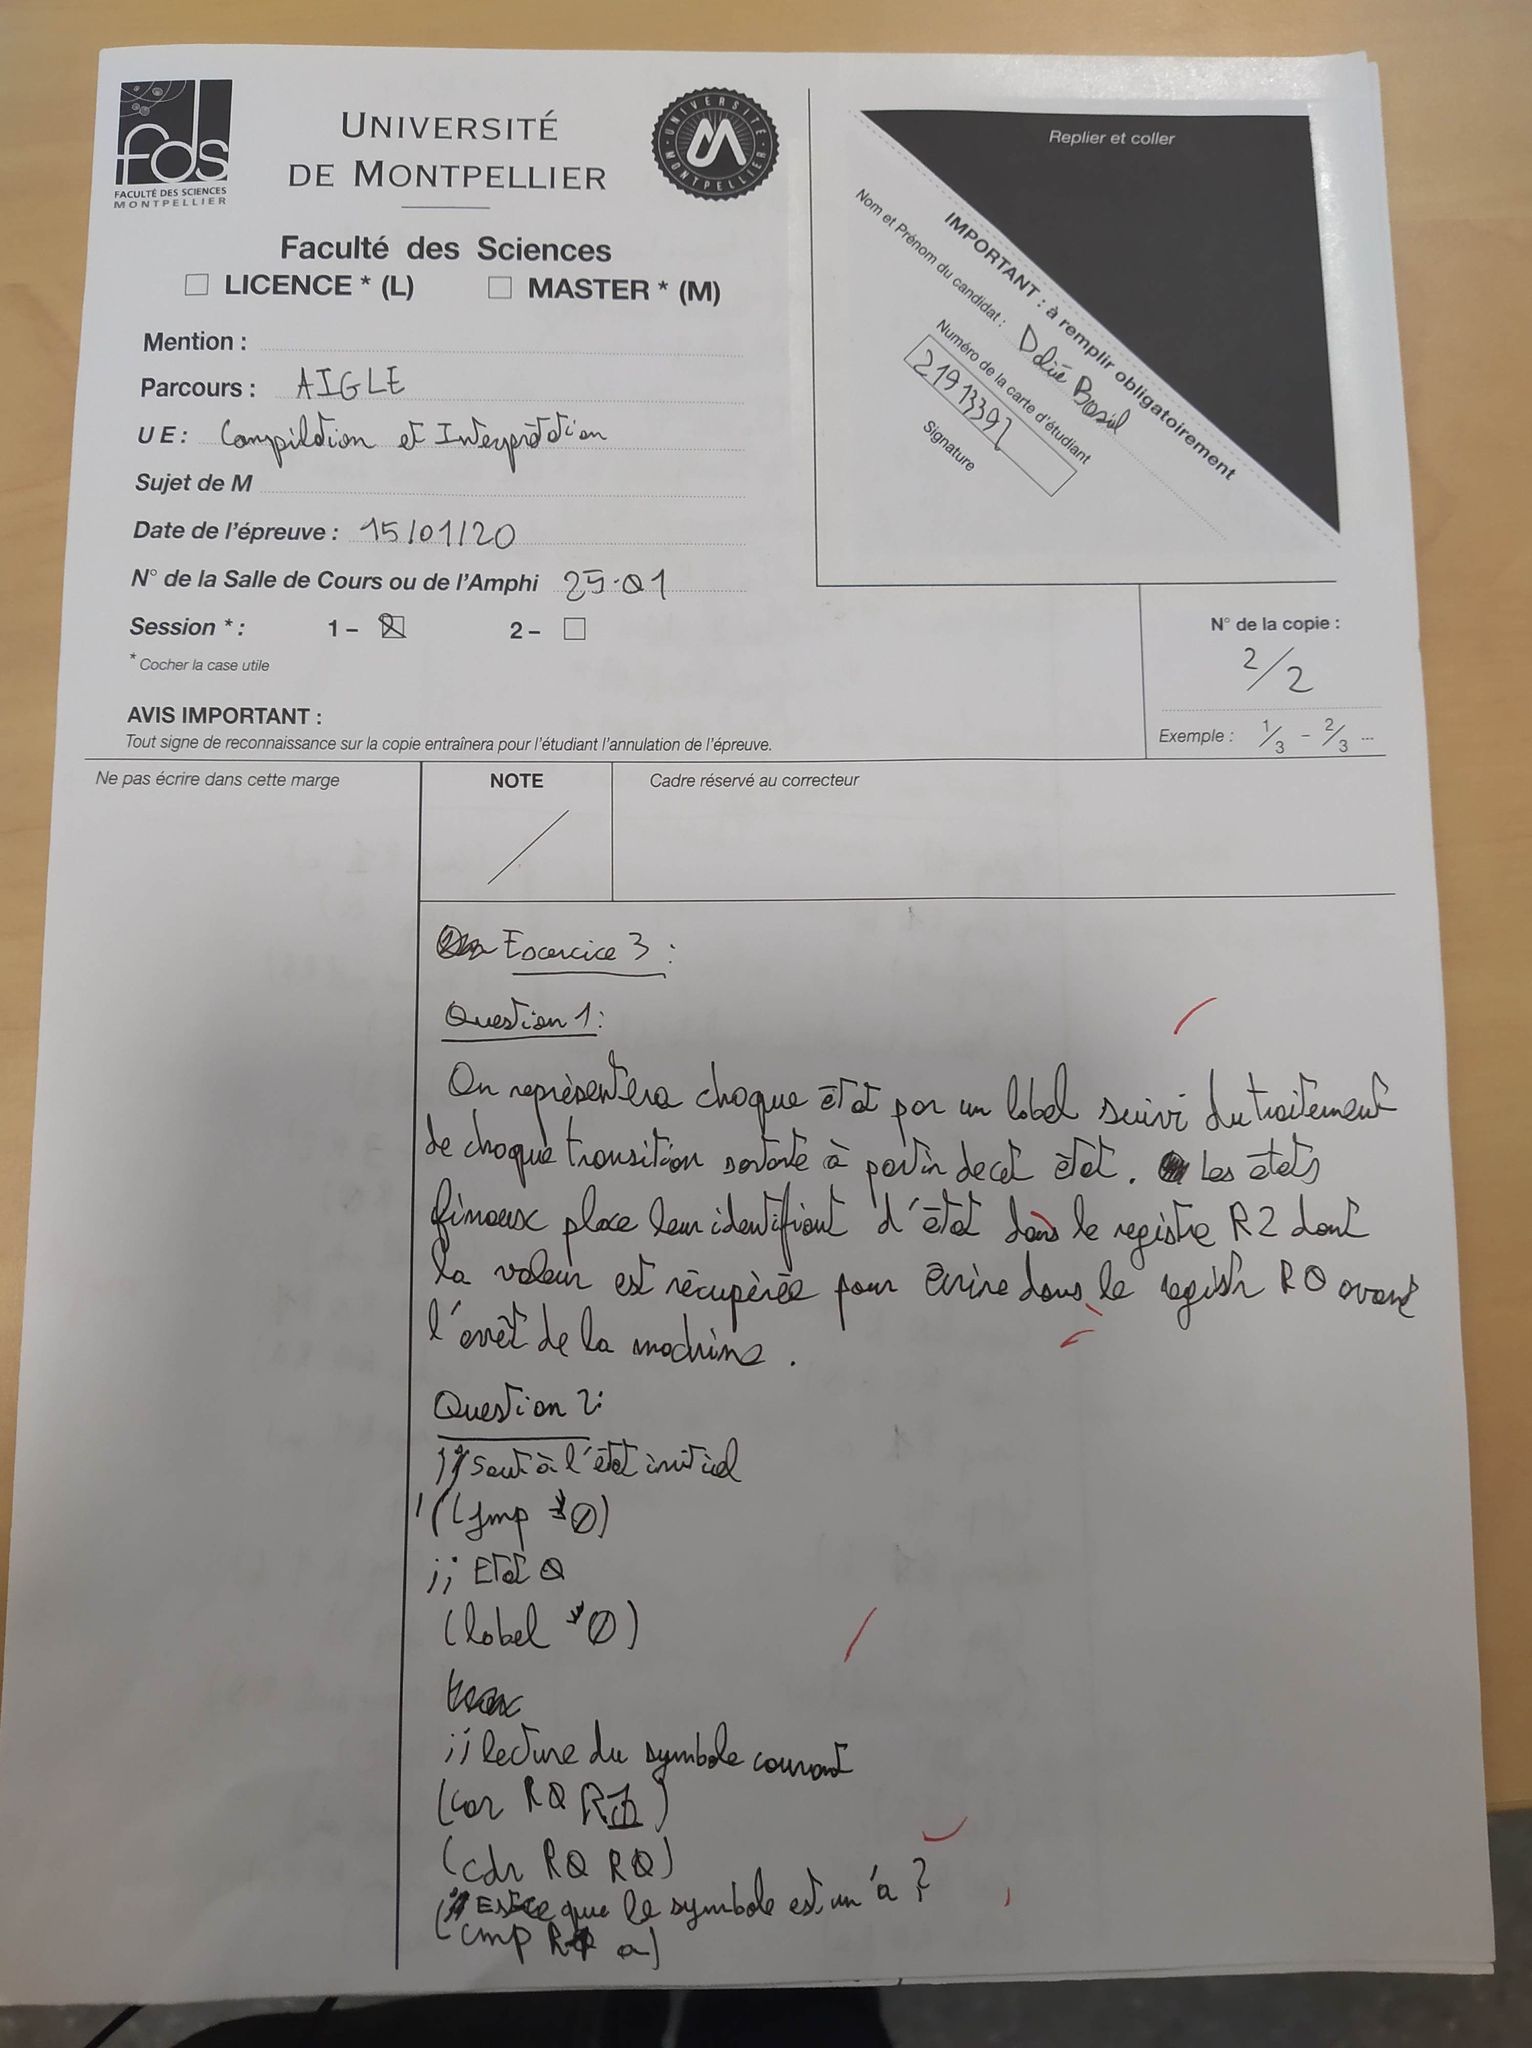 fds
FACULTÉ DES SCIENCES
MONTPELLIER
UNIVERSITÉ
DE MONTPELLIER
UNIVERSITÉ MONTPELLIER
Faculté des Sciences
LICENCE * (L) MASTER * (M)
Mention :
Parcours : AIGLE
UE : Compilation et Interprétation
Sujet de M
Date de l'épreuve : 15/01/20
N° de la Salle de Cours ou de l'Amphi 25.01
Session * : 1 – 2 –
* Cocher la case utile
AVIS IMPORTANT :
Tout signe de reconnaissance sur la copie entraînera pour l'étudiant l'annulation de l'épreuve.
Replier et coller
IMPORTANT : à remplir obligatoirement
Nom et Prénom du candidat : Basil
Numéro de la carte d'étudiant
21913392
Signature
N° de la copie :
2/2
Exemple : 1/3 - 2/3 ...
Ne pas écrire dans cette marge
NOTE
Cadre réservé au correcteur
Exercice 3 :
Question 1 :
On représentera chaque état par un label suivi du traitement
de chaque transition sortante à partir de cet état. Les états
finaux place leur identifiant d'état dans le registre R2 dont
la valeur est récupérée pour écrire dans le registr R0 avant
l'arrêt de la machine.
Question 2 :
;; Saut à l'état initial
'((jmp 0)
;; Etat 0
(label 0)
;; lecture du symbole courant
(car R0
(cdr R0 R0)
;; Est ce que le symbole est un 'a ?
(cmp a)